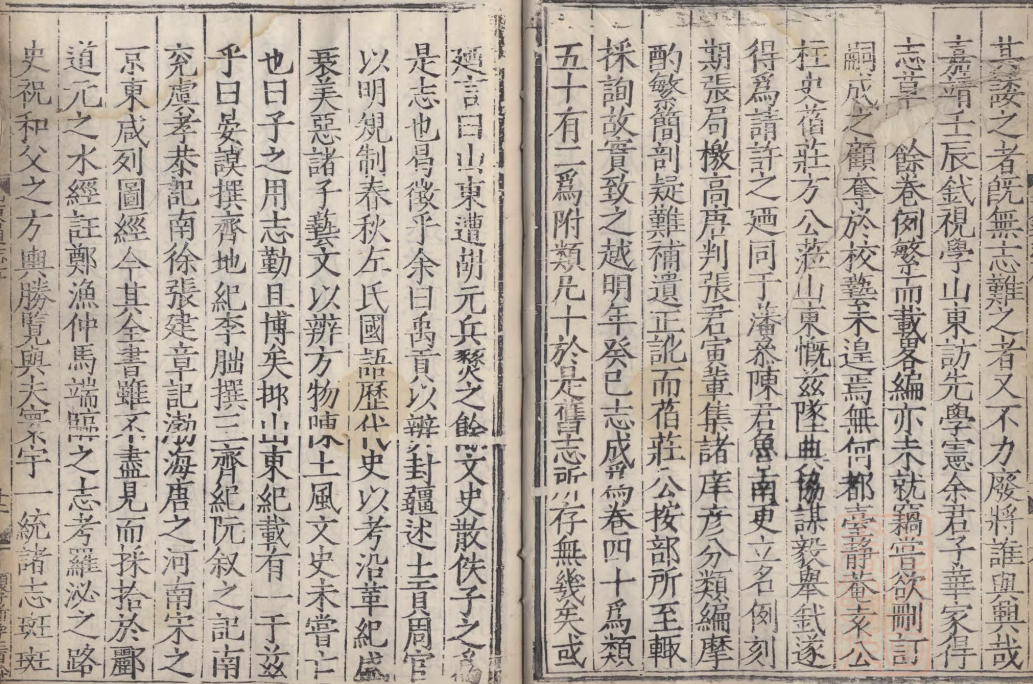 其諉之者旣無志難之者又不力廢將誰與興哉
嘉靖壬辰釴視學山東訪先學憲余君子華家得
志草餘卷例繁而載畧編亦未就竊嘗欲刪訂
嗣成之顧奪於校藝未遑焉無何都臺靜菴袁公
柱史蓓莊方公蒞山東慨兹墜典協謀毅舉釴遂
得爲請許之廼同于藩叅陳君魯南更立名例刻
期張局檄高唐判張君寅輩集諸庠彦分類編摩
酌繁簡剖疑難補遺正訛而蓓莊公按部所至輒
採詢故實致之越明年癸巳志成爲卷四十爲類
五十有二爲附類凡十於是舊志所存無幾矣或
廼言曰山東遭胡元兵燹之餘文史散佚子之爲
是志也曷徵乎余曰禹貢以辨封疆述土貢周官
以明䂓制春秋左氏國語歷代史以考沿革紀盛
衰美惡諸子藝文以辨方物陳土風文史未嘗亡
也曰子之用志勤且博矣抑山東紀載有一于兹
乎曰晏謨撰齊地紀李朏撰三齊紀阮叙之記南
兖虞孝恭記南徐張建章記渤海唐之河南宋之
京東咸列圖經今其全書雖不盡見而採拾於酈
道元之水經註鄭漁仲馬端臨之志考羅泌之路
史祝和父之方輿勝覽與夫寰宇一統諸志斑斑